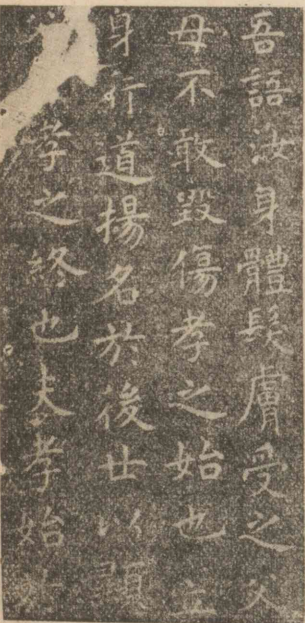 吾語汝身體髮膚受之父
母不敢毀傷孝之始也立
身行道揚名於後世以顯
孝之終也夫孝始